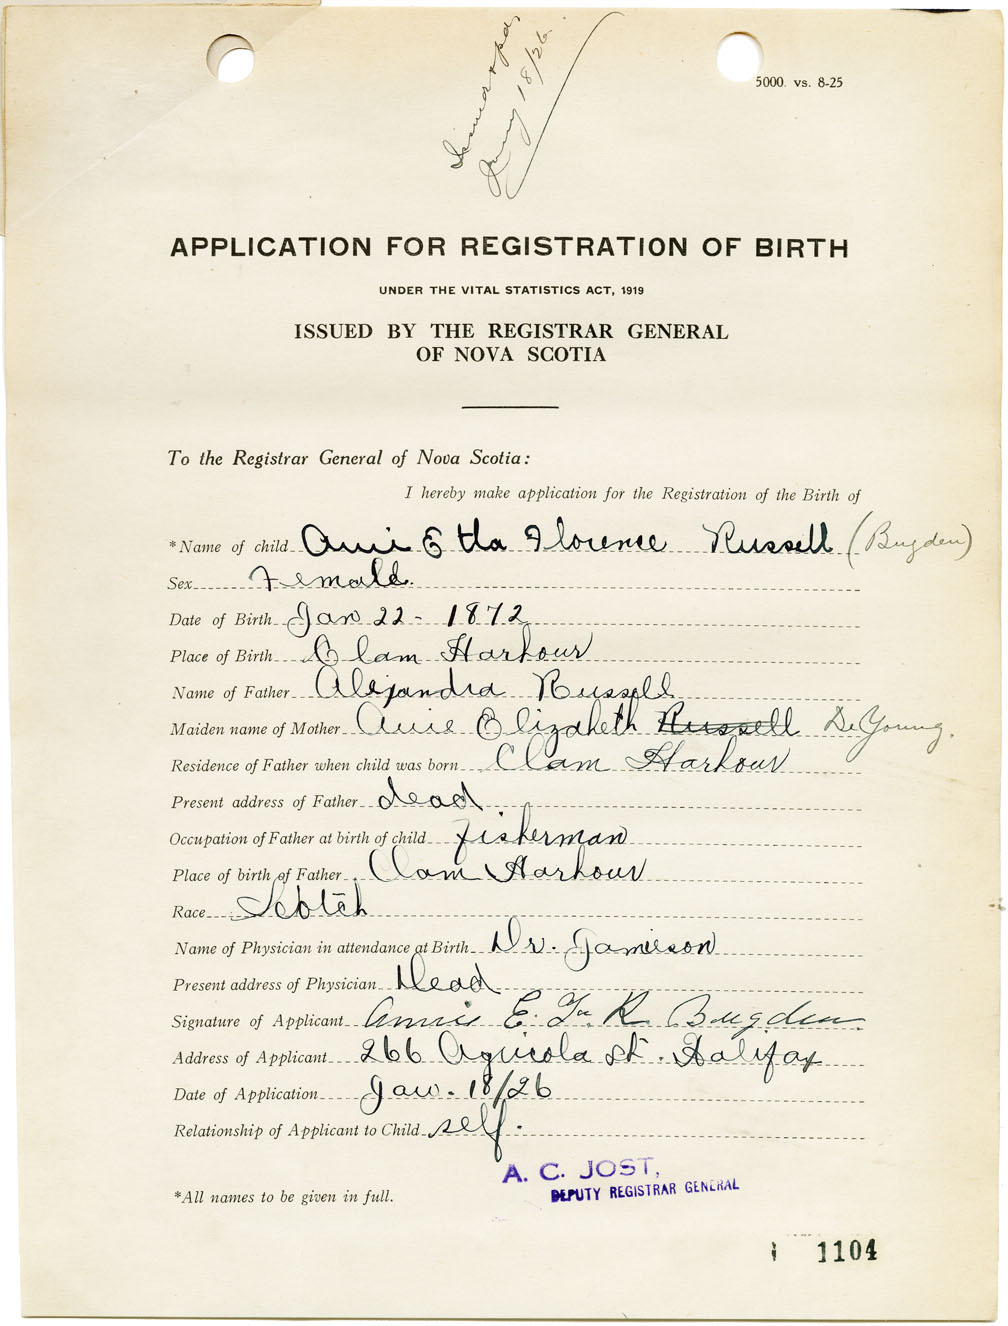 Issued & pd.
Jany 18/26.
5000. vs. 8-25
APPLICATION FOR REGISTRATION OF BIRTH
UNDER THE VITAL STATISTICS ACT, 1919
ISSUED BY THE REGISTRAR GENERAL
OF NOVA SCOTIA
To the Registrar General of Nova Scotia:
I hereby make application for the Registration of the Birth of
*Name of child Annie Etta Florence Russell (Bugden)
Sex Female.
Date of Birth Jan 22 - 1872
Place of Birth Clam Harbour
Name of Father Alejandra Russell
Maiden name of Mother Annie Elizabeth Russell De Young.
Residence of Father when child was born Clam Harbour
Present address of Father dead
Occupation of Father at birth of child fisherman
Place of birth of Father Clam Harbour
Race Scotch
Name of Physician in attendance at Birth Dr. Jamieson
Present address of Physician Dead
Signature of Applicant Annie E. R. Bugden.
Address of Applicant 266 Agricola st. Halifax
Date of Application Jan. 18/26
Relationship of Applicant to Child self.
A. C. JOST,
DEPUTY REGISTRAR GENERAL
*All names to be given in full.
1104